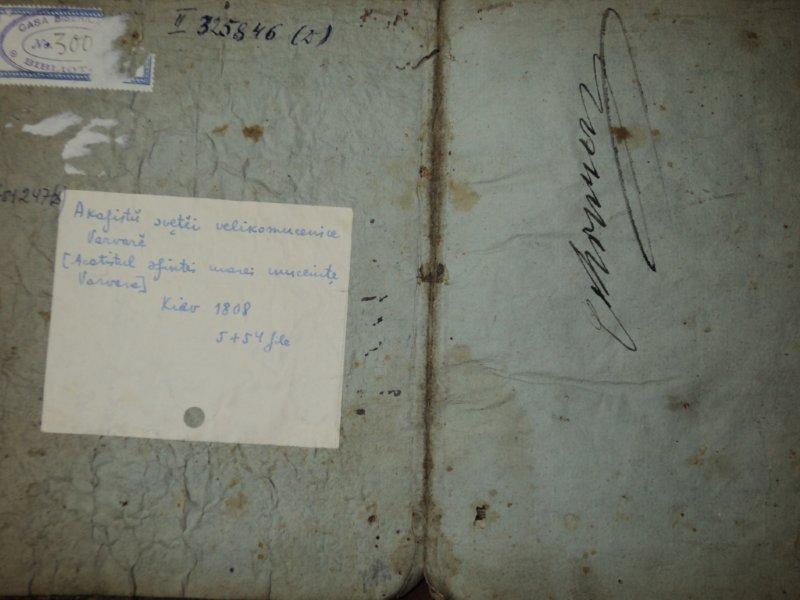 CASA
No. 300
BIBLIOT
II 325846 (2)
Akafistŭ svętěi velikomucenice
Varvarě
[Acatistul sfintei marei mucenițe
Varvara]
Kiev 1808
5+54 file